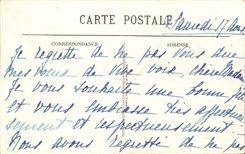 CARTE POSTALE
Samedi 17 Aout
CORRESPONDANCE ADRESSE
Je regrette de ne pas vous dire
de vive voix chère
Je vous souhaite une bonne
et vous embrasse très affectueu
sement et respectueusement
Nous avons regretté de ne pas